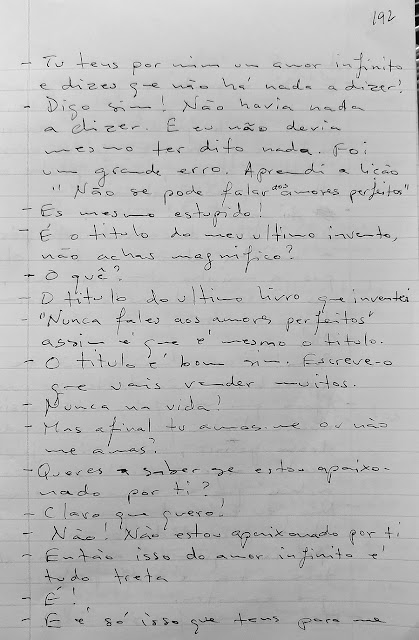 192
- Tu tens por mim um amor infinito
e dizes que não há nada a dizer!
- Digo sim! Não havia nada
a dizer. E eu não devia
mesmo ter dito nada. Foi
um grande erro. Aprendi a lição
"Não se pode falar aos amores perfeitos"
- És mesmo estupido!
- É o titulo do meu ultimo invento,
não achas magnifico?
- O quê?
- O titulo do ultimo livro que inventei
- "Nunca fales aos amores perfeitos"
assim é que é mesmo o titulo.
- O titulo é bom sim. Escreve-o
que vais vender muitos.
- Nunca na vida!
- Mas afinal tu amas-me ou não
me amas?
- Queres a saber se estou apaixo-
nado por ti?
- Claro que quero!
- Não! Não estou apaixonado por ti
- Então isso do amor infinito é
tudo treta
- É!
- E é só isso que tens para me